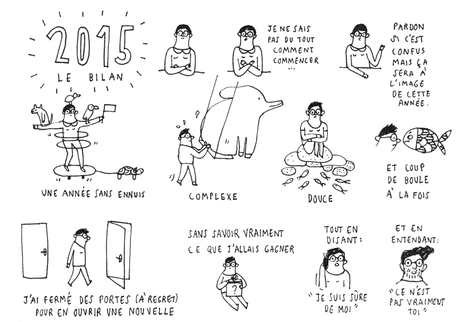 2015
LE BILAN
JE NE SAIS
PAS DU TOUT
COMMENT
COMMENCER
...
PARDON
SI C'EST
CONFUS
MAIS ÇA
SERA À
L'IMAGE
DE CETTE
ANNÉE.
UNE ANNÉE SANS ENNUIS
COMPLEXE
DOUCE
ET COUP
DE BOULE
À LA FOIS
J'AI FERMÉ DES PORTES (À REGRET)
POUR EN OUVRIR UNE NOUVELLE
SANS SAVOIR VRAIMENT
CE QUE J'ALLAIS GAGNER
?
TOUT EN
DISANT:
"JE SUIS SÛRE
DE MOI"
ET EN
ENTENDANT:
"CE N'EST
PAS VRAIMENT
TOI"